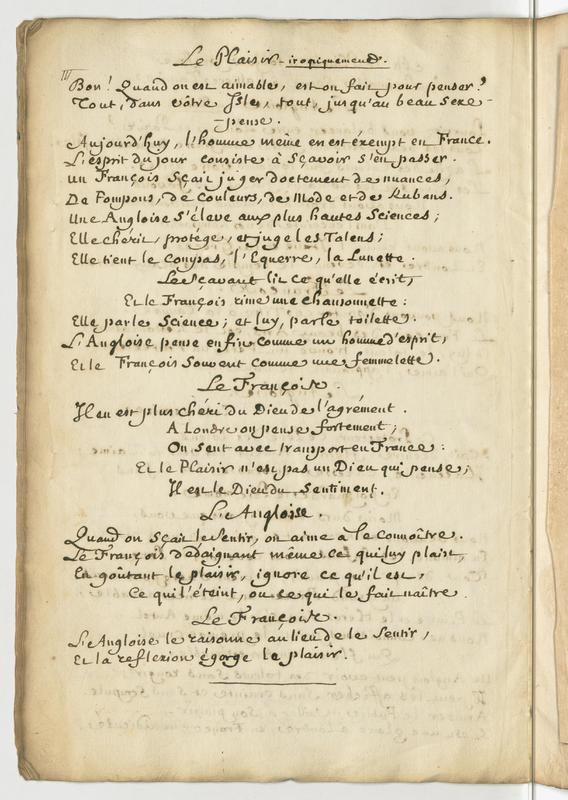 Le Plaisir - ironiquement.
III
Bon! Quand on est aimable, est on fait pour penser?
Tout, dans vôtre Isles, tout, jusqu'au beau Sexe -
- pense.
Aujourd'huy, l'homme même en est éxempt en France.
L'esprit du jour consiste à Sçavoir s'en passer.
Un François Sçait juger doctement de nuances,
De Pompons, de Couleurs, de Mode et de Rubans.
Une Angloise s'éleve aux plus hautes Sciences;
Elle chérit, protége, et juge les Talens;
Elle tient le Compas, l'Equerre, la Lunette.
Le Sçavant lit ce qu'elle écrit,
Et le François rime une chansonnette:
Elle parle Science; et luy, parle toilette.
L'Angloise pense enfin comme un homme d'esprit,
Et le François Souvent comme une femmelette.
Le François.
Il en est plus chéri du Dieu de l'agrément.
A Londre on pense fortement;
On sent avec transport en France:
Et le Plaisir n'est pas un Dieu qui pense;
Il est le Dieu du Sentiment.
L'Angloise.
Quand on Sçait le Sentir, on aime à le connoître.
Le François dédaignant même ce qui luy plaist,
En goûtant le plaisir, ignore ce qu'il est,
Ce qui l'éteint, ou ce qui le fait naître.
Le François.
L'Angloise le raisonne au lieu de le Sentir,
Et la reflexion égorge le plaisir.